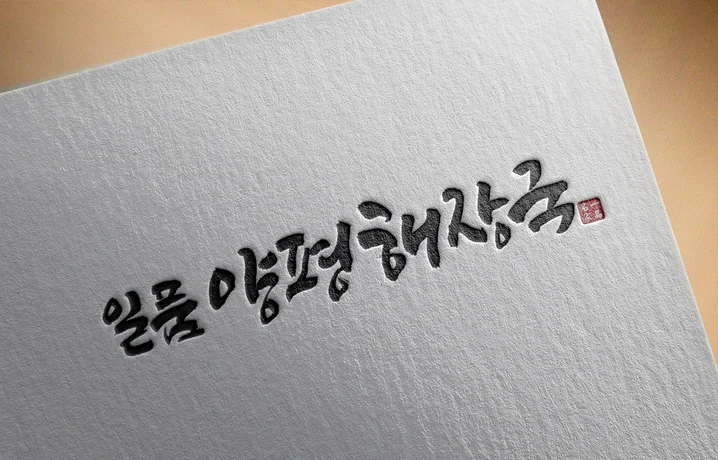 일품 양평해장국